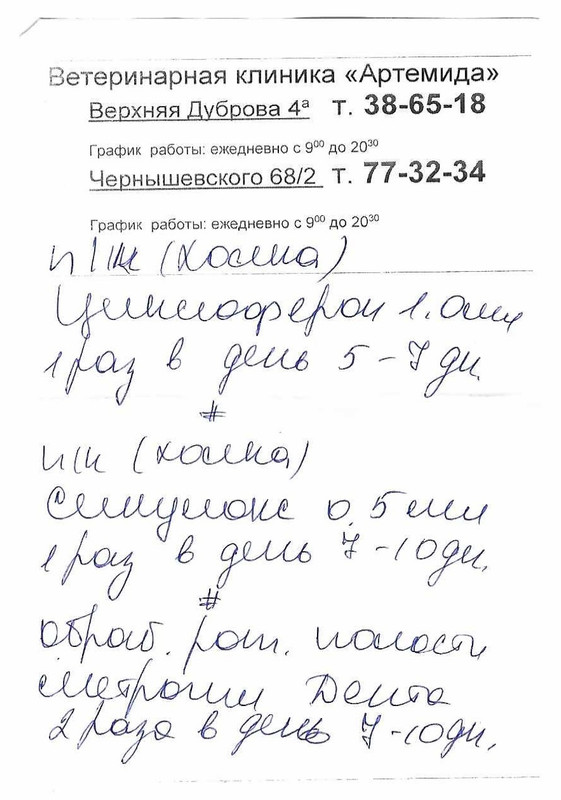 Ветеринарная клиника «Артемида»
Верхняя Дуброва 4а т. 38-65-18
График работы: ежедневно с 9⁰⁰ до 20³⁰
Чернышевского 68/2 т. 77-32-34
График работы: ежедневно с 9⁰⁰ до 20³⁰
п/к (холка)
Циклоферон 1.0 мл
1 раз в день 5-7 дн.
#
п/к (холка)
Синулокс 0.5 мл
1 раз в день 7-10 дн.
#
обраб. рот. полости
Метрогил Дента
2 раза в день 7-10 дн.